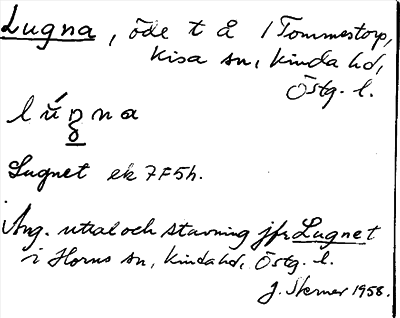 Lugna, öde t å 1 Tommestorp,
Kisa sn, Kinda hd,
Östg. l.
lúgna
Lugnet ek 7F5h.
Ang. uttal och stavning jfr Lugnet
i Horns sn, Kinda hd, Östg. l.
J. Sterner 1958.